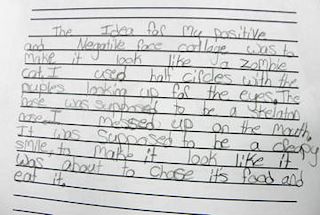 The Idea for my positive
and Negative face collage was to
make it look like a zombie
cat. I used half circles with the
puples looking up for the eyes. The
nose was supposed to be a skelaton
nose. I messed up on the mouth.
It was supposed to be a creepy
smile, to make it look like it
was about to chose its food and
eat it.